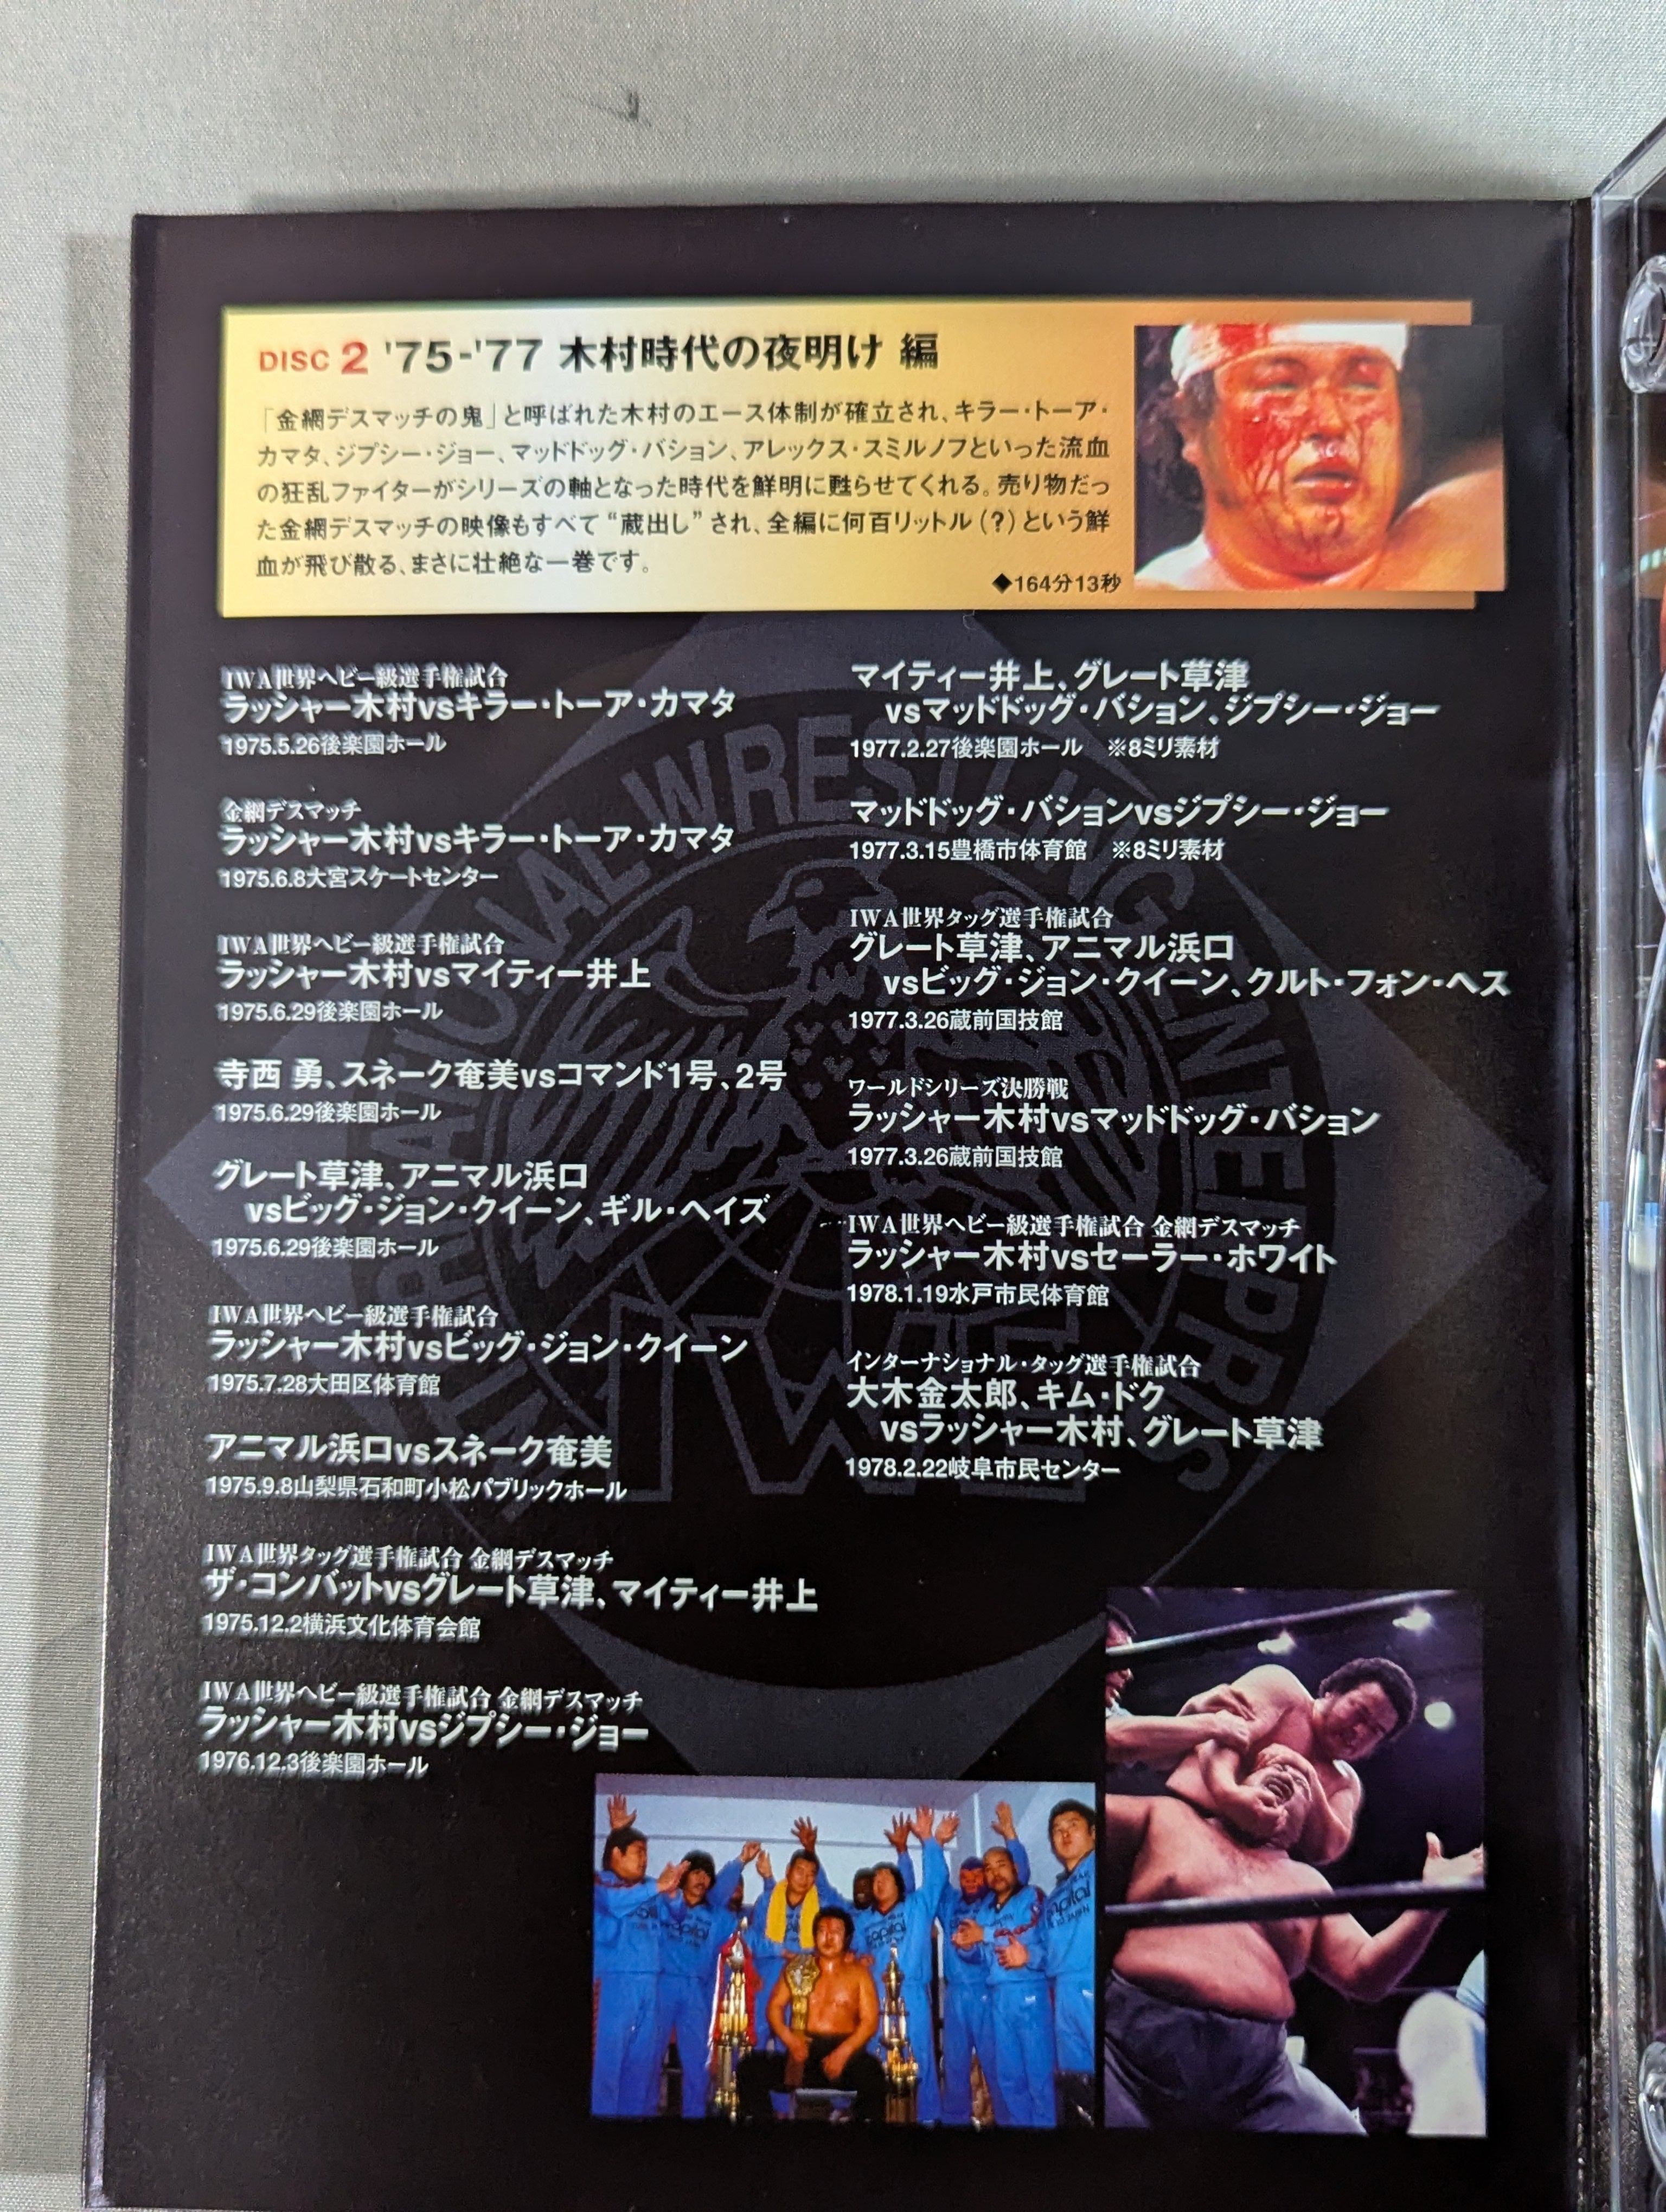 DISC 2 '75-'77 木村時代の夜明け 編
「金網デスマッチの鬼」と呼ばれた木村のエース体制が確立され、キラー・トーア・
カマタ、ジプシー・ジョー、マッドドッグ・バション、アレックス・スミルノフといった流血
の狂乱ファイターがシリーズの軸となった時代を鮮明に甦らせてくれる。売り物だっ
た金網デスマッチの映像もすべて“蔵出し”され、全編に何百リットル(?)という鮮
血が飛び散る、まさに壮絶な一巻です。
◆164分13秒
IWA世界ヘビー級選手権試合
ラッシャー木村vsキラー・トーア・カマタ
1975.5.26後楽園ホール
金網デスマッチ
ラッシャー木村vsキラー・トーア・カマタ
1975.6.8大宮スケートセンター
IWA世界ヘビー級選手権試合
ラッシャー木村vsマイティー井上
1975.6.29後楽園ホール
寺西 勇、スネーク奄美vsコマンド1号、2号
1975.6.29後楽園ホール
グレート草津、アニマル浜口
vsビッグ・ジョン・クイーン、ギル・ヘイズ
1975.6.29後楽園ホール
IWA世界ヘビー級選手権試合
ラッシャー木村vsビッグ・ジョン・クイーン
1975.7.28大田区体育館
アニマル浜口vsスネーク奄美
1975.9.8山梨県石和町小松パブリックホール
IWA世界タッグ選手権試合 金網デスマッチ
ザ・コンバットvsグレート草津、マイティー井上
1975.12.2横浜文化体育会館
IWA世界ヘビー級選手権試合 金網デスマッチ
ラッシャー木村vsジプシー・ジョー
1976.12.3後楽園ホール
マイティー井上、グレート草津
vsマッドドッグ・バション、ジプシー・ジョー
1977.2.27後楽園ホール ※8ミリ素材
マッドドッグ・バションvsジプシー・ジョー
1977.3.15豊橋市体育館 ※8ミリ素材
IWA世界タッグ選手権試合
グレート草津、アニマル浜口
vsビッグ・ジョン・クイーン、クルト・フォン・ヘス
1977.3.26蔵前国技館
ワールドシリーズ決勝戦
ラッシャー木村vsマッドドッグ・バション
1977.3.26蔵前国技館
IWA世界ヘビー級選手権試合 金網デスマッチ
ラッシャー木村vsセーラー・ホワイト
1978.1.19水戸市民体育館
インターナショナル・タッグ選手権試合
大木金太郎、キム・ドク
vsラッシャー木村、グレート草津
1978.2.22岐阜市民センター
INTERNATIONAL WRESTLING ENTERPRISE
IWE